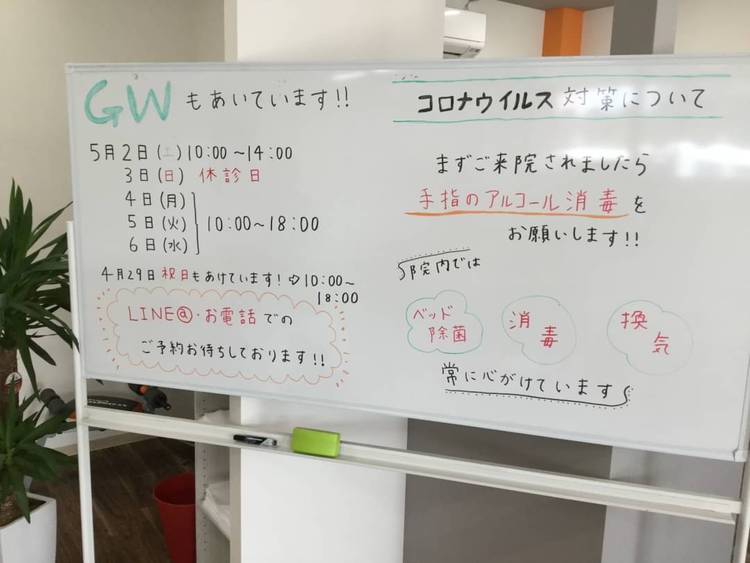 GWもあいています!!
5月2日(土)10:00〜14:00
3日(日) 休診日
4日(月)
5日(火) 10:00〜18:00
6日(水)
4月29日 祝日もあけています! ⇨10:00〜
18:00
LINE@・お電話での
ご予約お待ちしております!!
コロナウイルス対策について
まずご来院されましたら
手指のアルコール消毒を
お願いします!!
院内では
ベッド
除菌
消
毒
換
気
常に心がけています